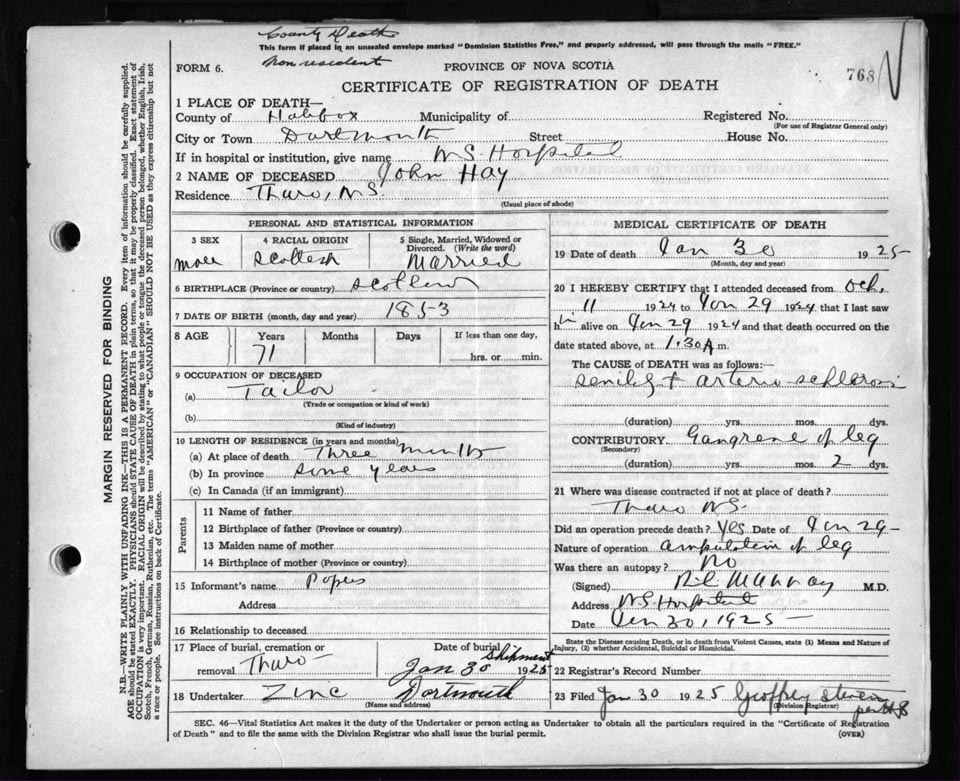 County Death
This form if placed in an unsealed envelope marked "Dominion Statistics Free," and properly addressed, will pass through the mails "FREE."
FORM 6. Non resident PROVINCE OF NOVA SCOTIA 768
CERTIFICATE OF REGISTRATION OF DEATH
1 PLACE OF DEATH—
County of Halifax Municipality of Registered No.
(For use of Registrar General only)
City or Town Dartmouth Street House No.
If in hospital or institution, give name N.S. Hospital
2 NAME OF DECEASED John Hay
Residence Truro, N.S.
(Usual place of abode)
PERSONAL AND STATISTICAL INFORMATION
3 SEX 4 RACIAL ORIGIN 5 Single, Married, Widowed or Divorced. (Write the word)
Male Scottish Married
6 BIRTHPLACE (Province or country) Scotland
7 DATE OF BIRTH (month, day and year) 1853
8 AGE Years Months Days If less than one day,
71 hrs. or min.
9 OCCUPATION OF DECEASED
(a) Tailor
(Trade or occupation or kind of work)
(b)
(Kind of industry)
10 LENGTH OF RESIDENCE (in years and months)
(a) At place of death Three months
(b) In province Some years
(c) In Canada (if an immigrant)
Parents
11 Name of father
12 Birthplace of father (Province or country)
13 Maiden name of mother
14 Birthplace of mother (Province or country)
15 Informant's name Papers
Address
16 Relationship to deceased
17 Place of burial, cremation or Date of burial Shipment
removal Truro Jan 30 1925
18 Undertaker Zinc Dartmouth
(Name and address)
MEDICAL CERTIFICATE OF DEATH
19 Date of death Jan 30 1925
(Month, day and year)
20 I HEREBY CERTIFY that I attended deceased from Oct.
11 1924 to Jan 29 1924 that I last saw
him alive on Jan 29 1924 and that death occurred on the
date stated above, at 1.30 A m.
The CAUSE OF DEATH was as follows:
Senility + arterio-schlerosis
(duration) yrs. mos. dys.
CONTRIBUTORY Gangrene of leg
(Secondary)
(duration) yrs. mos. 2 dys.
21 Where was disease contracted if not at place of death?
Truro N.S.
Did an operation precede death? Yes Date of Jan 29
Nature of operation amputation of leg
Was there an autopsy? No
(Signed) Murray M.D.
Address N.S. Hospital
Date Jan 30, 1925
State the Disease causing Death, or in death from Violent Causes, state (1) Means and Nature of
Injury, (2) whether Accidental, Suicidal or Homicidal.
22 Registrar's Record Number
23 Filed Jan 30 1925 Geoffrey Stevens
(Division Registrar)
SEC. 46—Vital Statistics Act makes it the duty of the Undertaker or person acting as Undertaker to obtain all the particulars required in the "Certificate of Registration
of Death" and to file the same with the Division Registrar who shall issue the burial permit. (OVER)
MARGIN RESERVED FOR BINDING
N.B.—WRITE PLAINLY WITH UNFADING INK—THIS IS A PERMANENT RECORD. Every item of information should be carefully supplied.
AGE should be stated EXACTLY. PHYSICIANS should STATE CAUSE OF DEATH in plain terms, so that it may be properly classified. Exact statement of
OCCUPATION is very important. RACIAL ORIGIN will be described by stating to what people or tongue the deceased person belonged, whether English, Irish,
Scotch, French, German, Russian, Ruthenian, etc. The terms "AMERICAN" or "CANADIAN" SHOULD NOT BE USED as they express citizenship but not
a race or people. See instructions on back of Certificate.